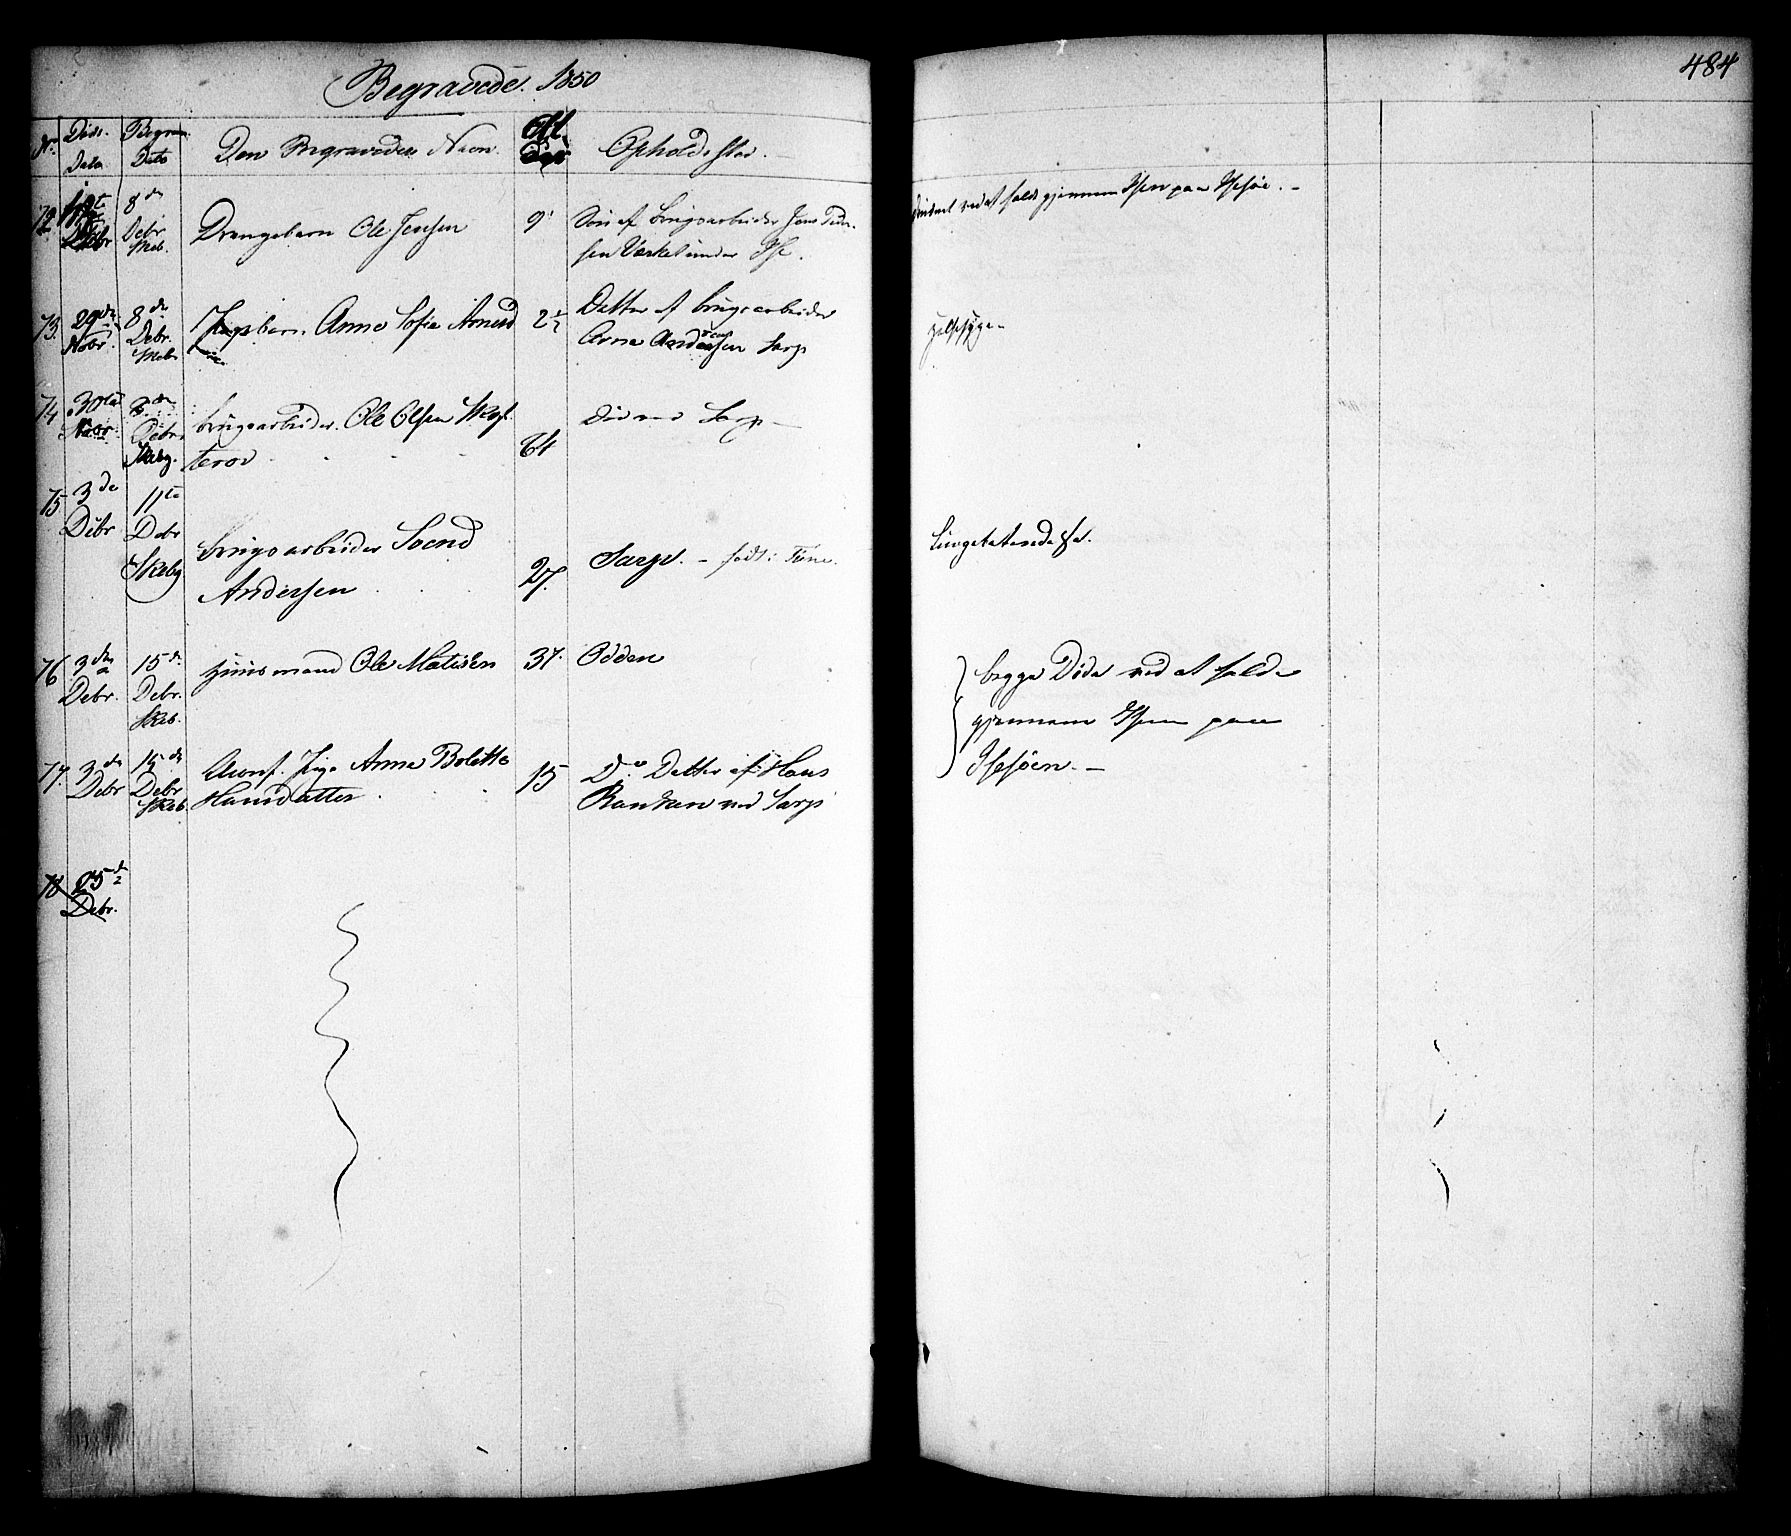 Begravede. 1850
484
Nr.
Døds.
Dato
Begrav.
Dato
Den Begravedes Navn.
Al
der
Opholdssted.
72.
Debr
8de
Debr.
Skeb.
Drengebarn Ole Jensen
9
Søn af Brugsarbeider Jens Peder-
sen Værket under Ise.
druknet ved at falde gjennem Isen paa Isesøe. -
73.
29de
Nobr.
8de
Debr.
Skeb.
Pigebarn. Anne Sofie Arnesd
2½
Datter af brugsarbeider
Arne Andersen Sarp
Halssyge -
74
30te
Nobr.
Debr
brugsarbeider. Ole Olsen
terød
64
ved Sarp -
75
3de
Debr
11te
Debr
Skebg
brugsarbeider Svend
Andersen
27.
Sarp. - født i Tune.
Lungebetændelse.
76
3de
Debr.
15de
Debr.
Skeb.
Huusmand Ole Matisen
37.
Odden
begge Døde ved at falde
gjennem Isen paa
Isesøen. -
77.
3de
Debr
15de
Debr
Skeb.
Uconf. Pige Anne Bolette
Hansdatter
15
Do Datter af Hans
Ranken ved Sarp
78
25de
Debr.